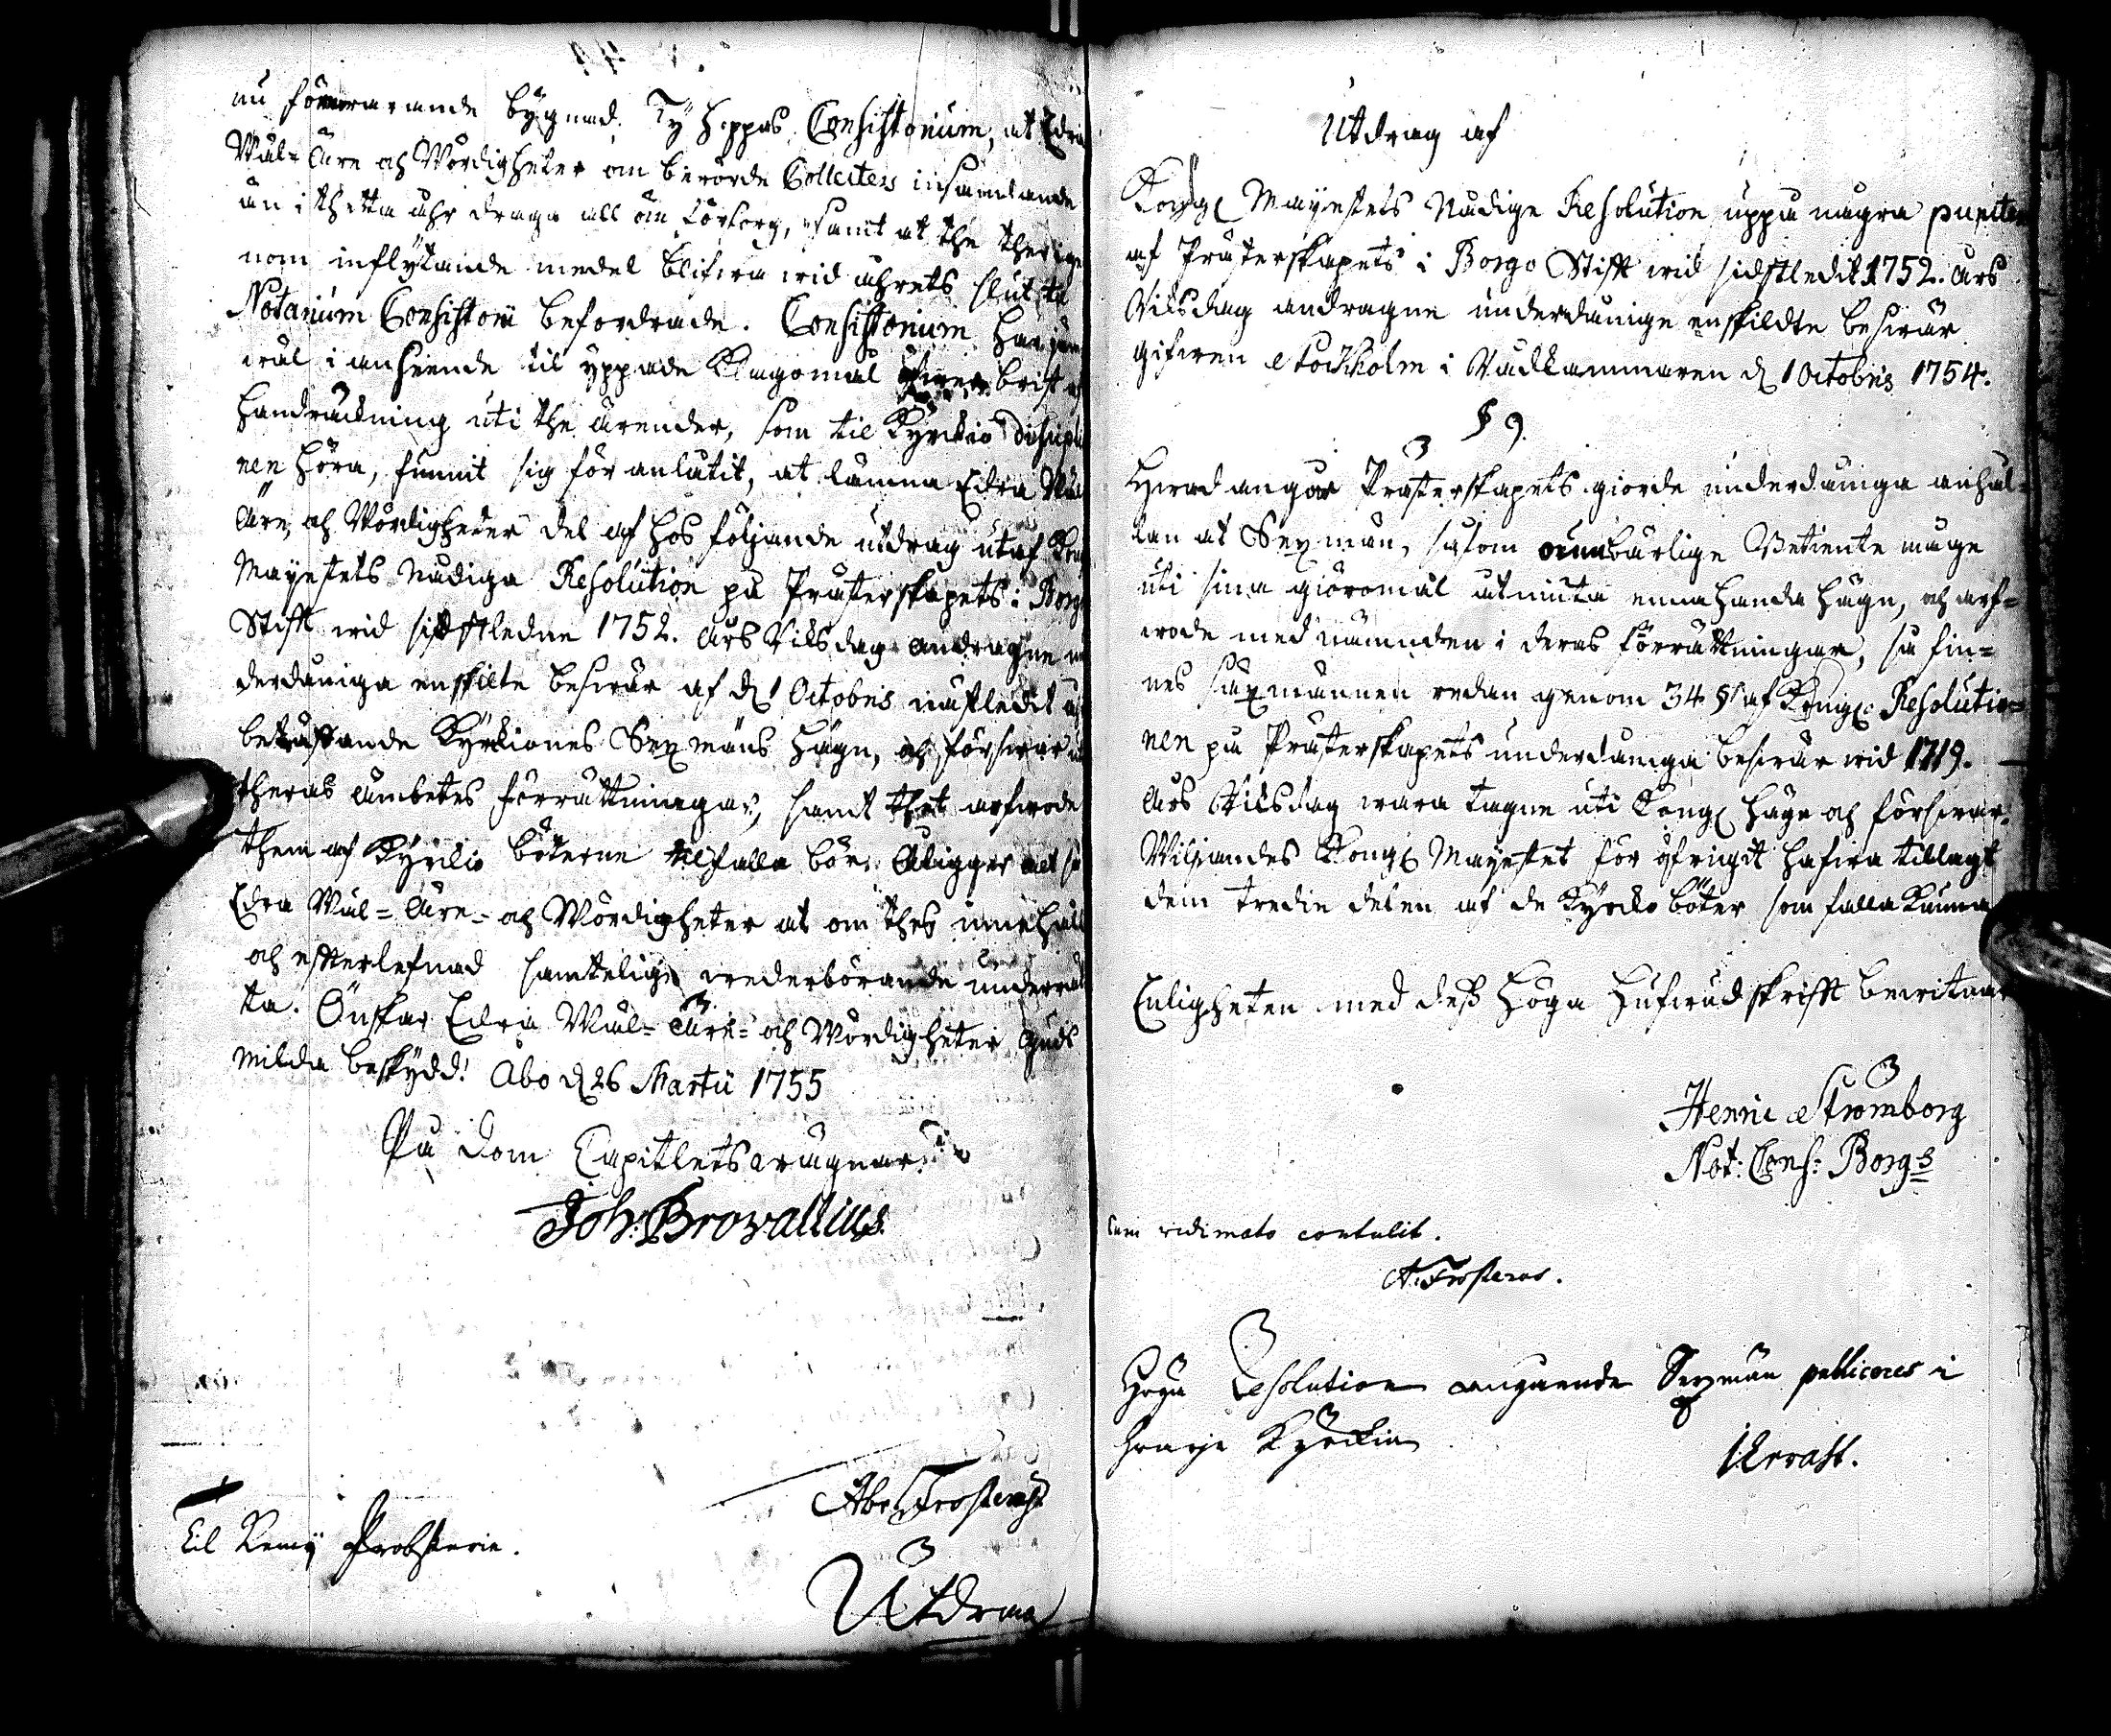 nu förewarande bygnad. Ty hoppas Consistorium, at Edra
Wäl- Äre och Wördigheter om berörde Collecters insamlande
än i thetta åhr draga all öm försorg, samt at the therige
nom inflytande medel blifwa wid åhrets slut til
Notarium Consistorii befordrade. Consistorium har jäm
wäl i anseende til yppade klagomål öfwer brist af
handräckning uti the ärender, som til Kyrckio discipli
nen höra, funnit sig för anlåtit, at lämna Edra Wäl
Äre, och Wördigheter del af hos följande utdrag utaf Kongl
Mayestets Nådiga Resolution på Prästerskapets i Borgo
Stift wid sidstledne 1752. års Riksdag andragne un
derdåniga enskilte beswär af d. 1 Octobris nästledit år
beträffande Kyrkiones Sexmäns hägn, och förswar uti
theras ämbetes förrättningar, samt thet arfwode
them af Kyrckio böterne tilfalla bör. Åligger alt så
Edra Wäl- Äre- och Wördigheter at om thes innehåll
och efterlefnad samtelige wederbörande underrät
ta. Önskar Edra Wäl- Äre- och Wördigheter Guds
milda beskydd! Åbo d. 26 Martii 1755
På Dom Capitlets wägnar
Joh: Browallius.
Abr. Frosterus
Til Kemi Probsterie.
Utdrag
Utdrag af
Kongl Mayestets Nådige Resolution uppå några puncter
af Prästerskapets i Borgo Stift wid sidstledit 1752. Års
Riksdag andragne underdånige enskildte beswär
gifwen Stockholm i Rådkammaren d. 1 Octobris 1754.
§ 9.
Hwad angår Prästerskapets giorde underdåniga anhål-
lan at Sexmän, såsom oumbärlige Betiente måge
uti sina giöromål åtniuta ennahanda hägn, och arf-
wode med nämnden i deras förrättningar, så fin-
nes Säxmännen redan genom 34 § af Kongl. Resolutio-
nen på Prästerskapets underdåniga beswär wid 1719.
Års Riksdag wara tagne uti Kongl hägn och förswar.
Wiljandes Kongl Mayestet för öfrigit hafwa tillagt
dem tredie delen af de Kyrcko böter som falla kunna
Enligheten med dess höga hufwudskrift bewitnar
Henric Strömborg
Not: Cons: Borg:s
Cum vidimato contulit.
A. Frosterus.
Höga Resolution angående Sexmän publiceres i
hwarje Kyrckia